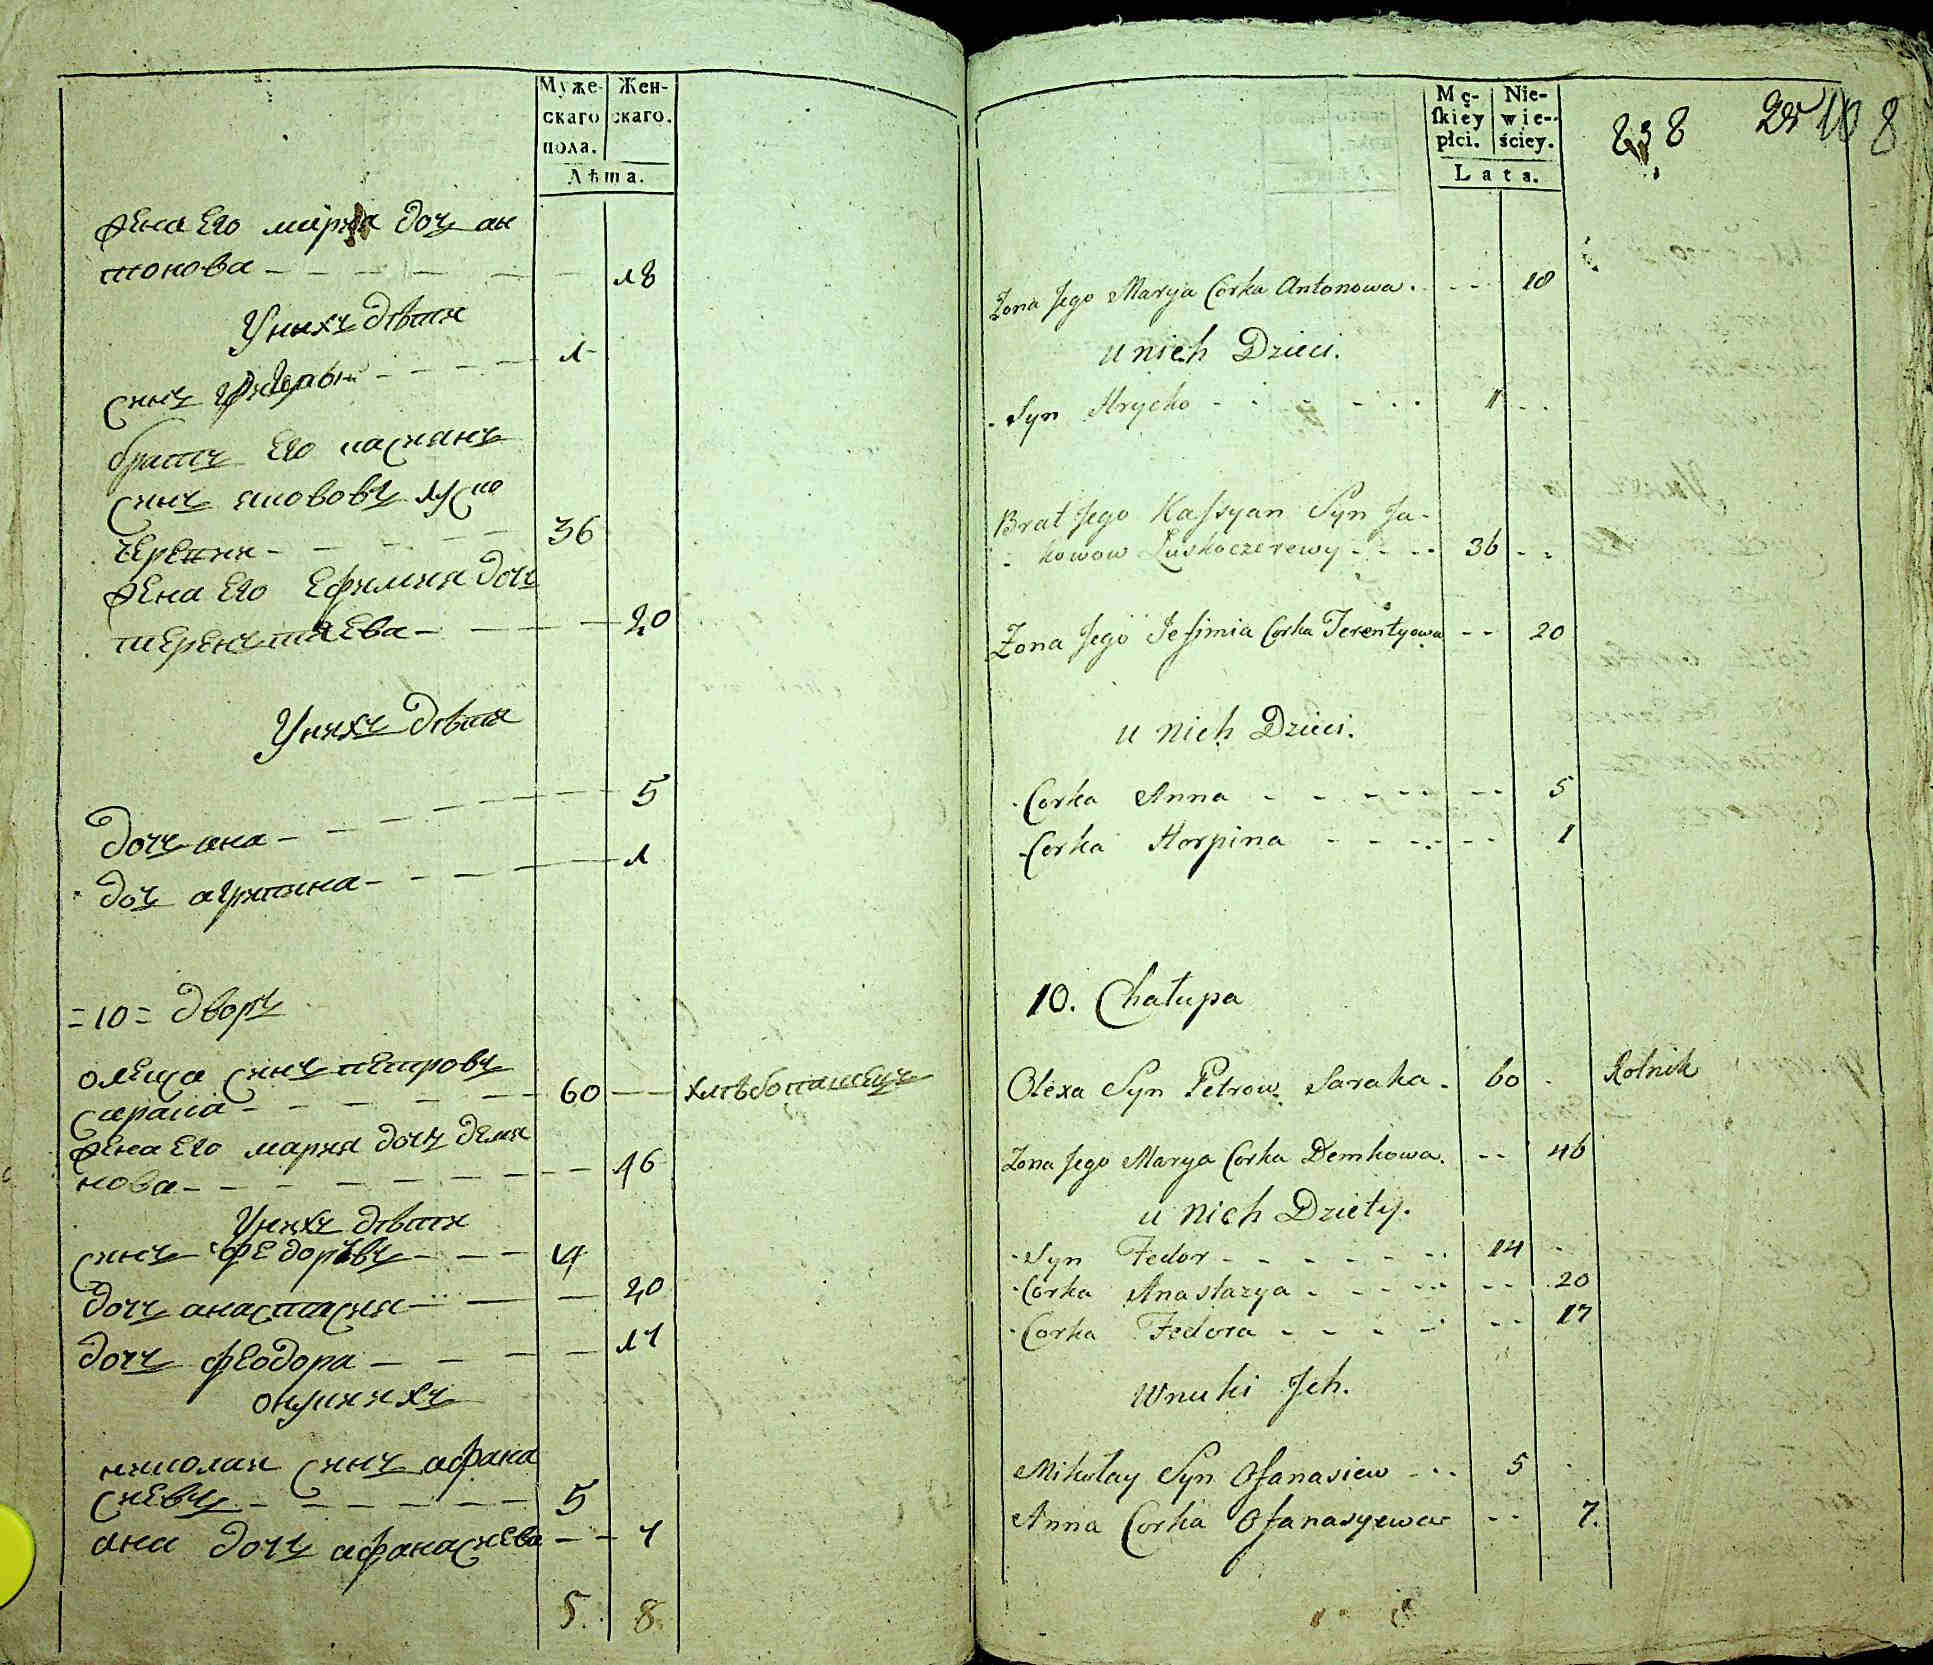 Муже-
скаго
пола.
Жен-
скаго.
Лѣта.
жена его мария доч ан
тонова - - - - - 18
У нихъ дѣти
синъ - - - - 1
братъ его касиянъ
синъ якововъ луско
череѵи - - - - 36
жена его ефимия доч
терентиева - - - 20
У нихъ дѣти
дочъ ана - - - - - 5
доч агрипина - - - - - 1
=10= дворъ
олекса синъ петровъ
сарака - - - - - 60 - - хлѣбопашецъ
жена его мария дочъ дем
кова - - - - - - 46
У нихъ дѣти
синъ федоръ - - - 14
дочъ анастасия - - - 20
дочъ феодора - - - - 17
онуки ихъ
николай синъ афана
сиевъ - - - - - 5
ана дочъ афанасиева - - 7
5. 8.
Mę-
ſkiey
płci.
Nie-
wie-
ściey.
Lata.
8
Zona Jego Marya Corka Antonowa. - - 18
u nich Dzieci.
Syn Hrycko - - - - - - 1 - -
Brat Jego Kaſsyan Syn Ja-
kowow Luskoczerewy - - - 36 - -
Zona Jego Jefimia Corka Terentyowa - - 20
u nich Dzieci.
Corka Anna - - - - - - - 5
Corka Horpina - - - - - - 1
10. Chałupa
Olexa Syn Petrow Saraka. 60 - Rolnik
Zona Jego Marya Corka Demkowa. - - 46
u nich Dziety.
Syn Fedor - - - - - - 14 -
Corka Anastazya - - - - - - 20
Corka Fedora - - - - - - 17
Wnuki Jch.
Mikołay Syn Ofanasiew - - - 5 -
Anna Corka Ofanasyewa - - 7.